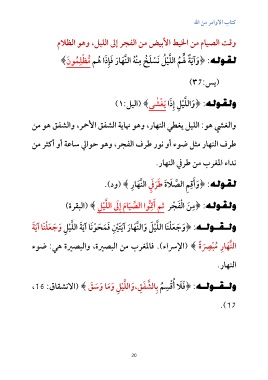 كتاب الأوامر من الله
وقت الصيام من الخيط الأبيض من الفجر إلى الليل، وهو الظلام
لقوله: ﴿وَآيَةٌ لَّهُمُ اللَّيْلُ نَسْلَخُ مِنْهُ النَّهَارَ فَإِذَا هُم مُّظْلِمُونَ﴾
(يس:٣٧)
ولقوله: ﴿وَاللَّيْلِ إِذَا يَغْشَى﴾ (اليل:١)
والغشي هو: الليل يغطي النهار، وهو نهاية الشفق الأحمر، والشفق هو من
طرف النهار مثل ضوء أو نور طرف الفجر، وهو حوالي ساعة أو أكثر من
نداء المغرب من طرفي النهار.
لقوله: ﴿وَأَقِمِ الصَّلَاةَ طَرَفَيِ النَّهَارِ﴾ (ود).
ولقوله: ﴿مِنَ الْفَجْرِ ثم أَتِمُّوا الصِّيَامَ إِلَى اللَّيْلِ﴾ (البقرة)
ولقوله: ﴿وَجَعَلْنَا اللَّيْلَ وَالنَّهَارَ آيَتَيْنِ فَمَحَوْنَا آيَةَ اللَّيْلِ وَجَعَلْنَا آيَةَ
النَّهَارِ مُبْصِرَةً﴾ (الإسراء). فالمغرب من البصيرة، والبصيرة هي: ضوء
النهار.
ولقوله: ﴿فَلَا أُقْسِمُ بِالشَّفَقِ، وَاللَّيْلِ وَمَا وَسَقَ﴾ (الانشقاق: 16،
17).
20